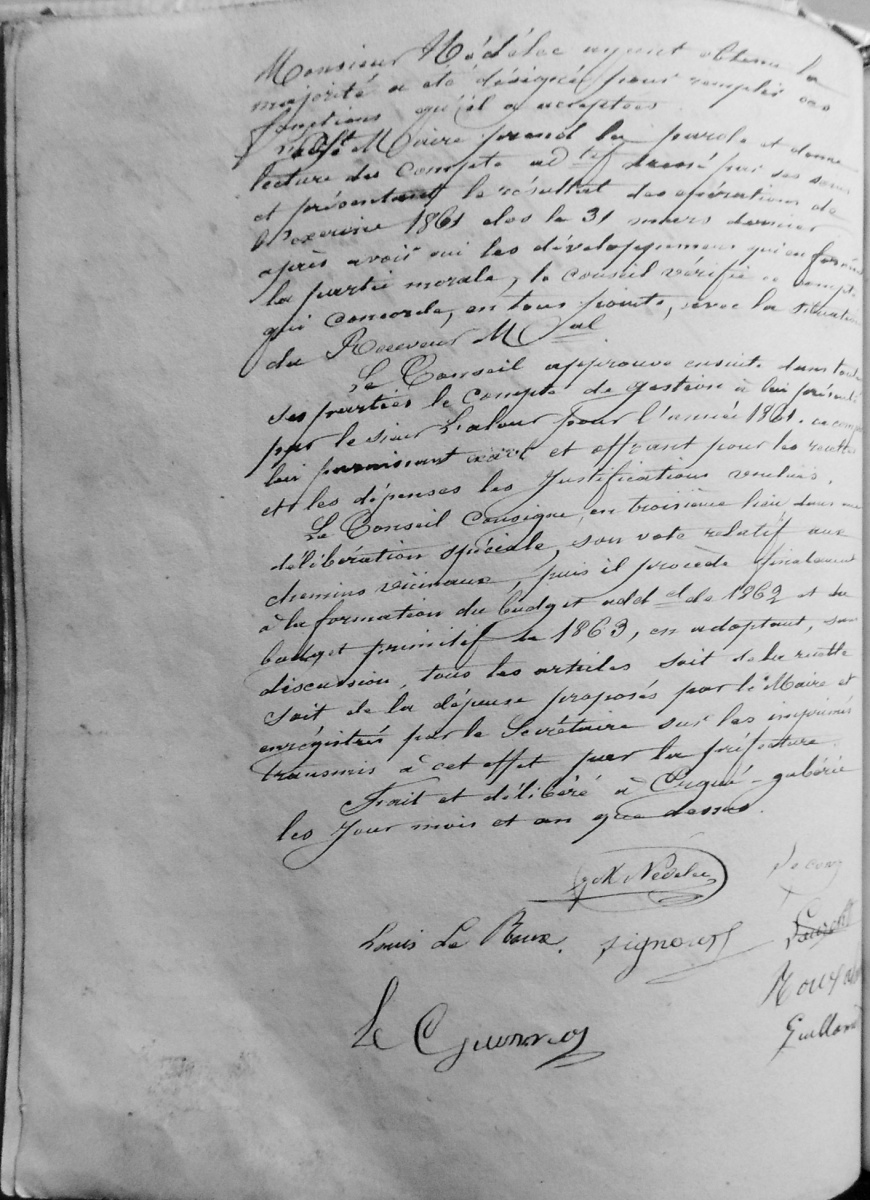 Monsieur Nédélec ayant obtenu la
majorité a été désigné pour remplir ces
fonctions qu'il a acceptées.
Maire prend la parole et donne
lecture du compte ad tif dressé par ses soins
et présentant le résultat des opérations de
l'exercice 1861 clos le 31 mars dernier
après avoir oui les développemens qui en forment
la partie morale, le conseil vérifie ce compte
qui concorde, en tous points, avec la situation
du Receveur M pal
Le Conseil approuve ensuite dans toutes
ses parties le compte de gestion à lui présenté
par le sieur pour l'année 1861. ce compte
lui paraissant exact et offrant pour les recettes
et les dépenses les Justifications voulues.
Le Conseil consigne, en troisième lieu dans une
délibération spéciale, son vote relatif aux
chemins vicinaux, puis il procède finalement
à la formation du budget add el de 1862 et du
budget primitif de 1863, en adoptant, sans
discussion, tous les articles soit de la recette
soit de la dépense proposés par le Maire et
enrégistrés par le Secrétaire sur les imprimés
transmis à cet effet par la préfecture.
Fait et délibéré à Ergué-gabéric
les Jour mois et an que dessus.
Nédélec
Louis Le Roux. Signour
Le Guennou